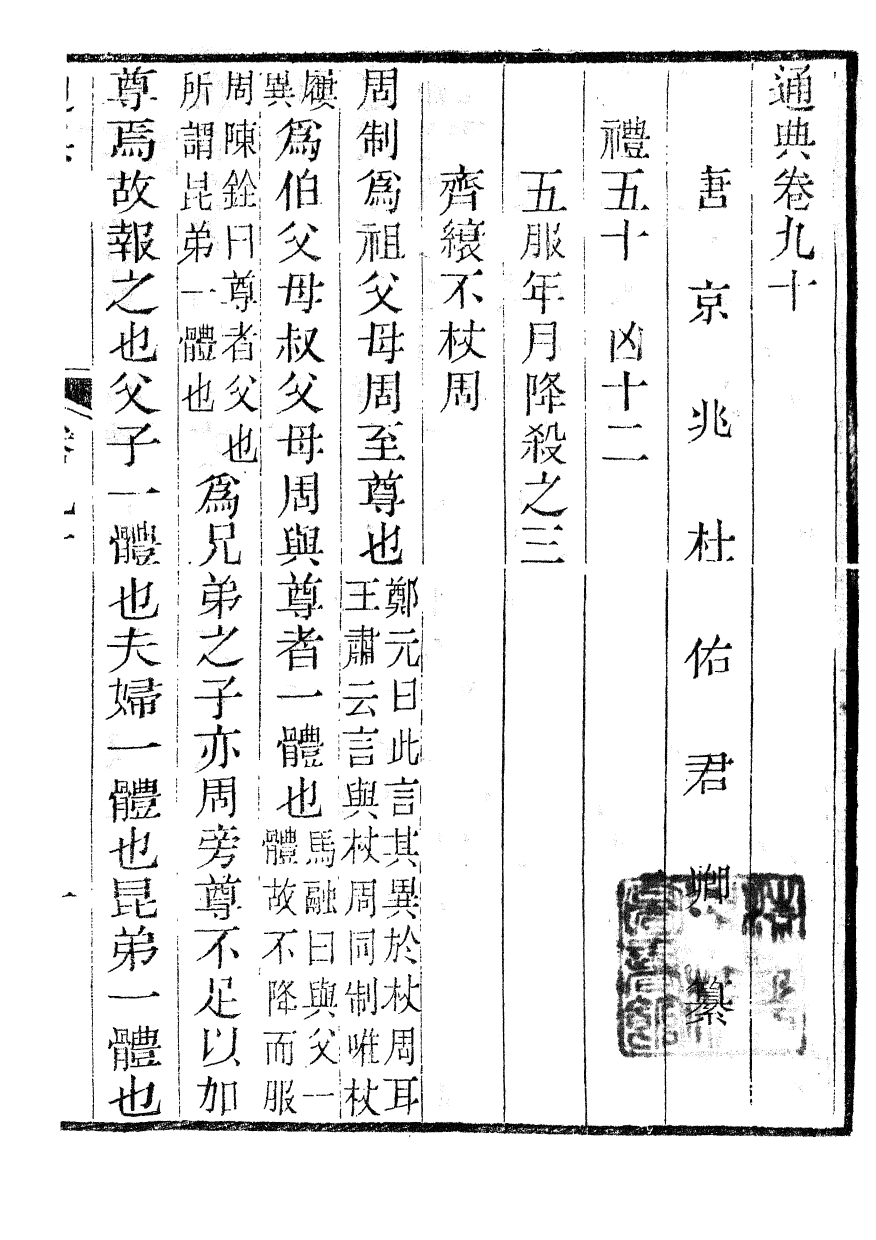 通典卷九十
唐京兆杜佑君卿纂
禮五十 凶十二
五服年月降殺之三
齊縗不杖周
周制爲祖父母周至尊也鄭元曰此言其異於杖周耳王肅云言與杖周同制唯杖
屨異爲伯父母叔父母周與尊者一體也馬融曰與父一體故不降而服
周陳銓曰尊者父也所謂昆弟一體也爲兄弟之子亦周旁尊不足以加
尊焉故報之也父子一體也夫婦一體也昆弟一體也